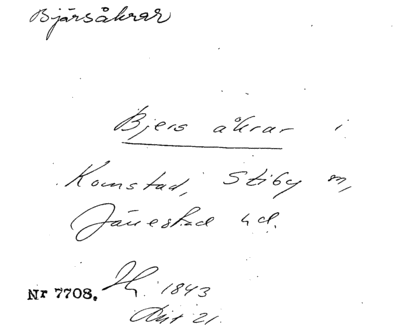 Bjärsåkrar
Bjers åkrar i
Komstad, Stiby sn,
Järrestad hd.
Nr 7708. 1843
Akt 21.